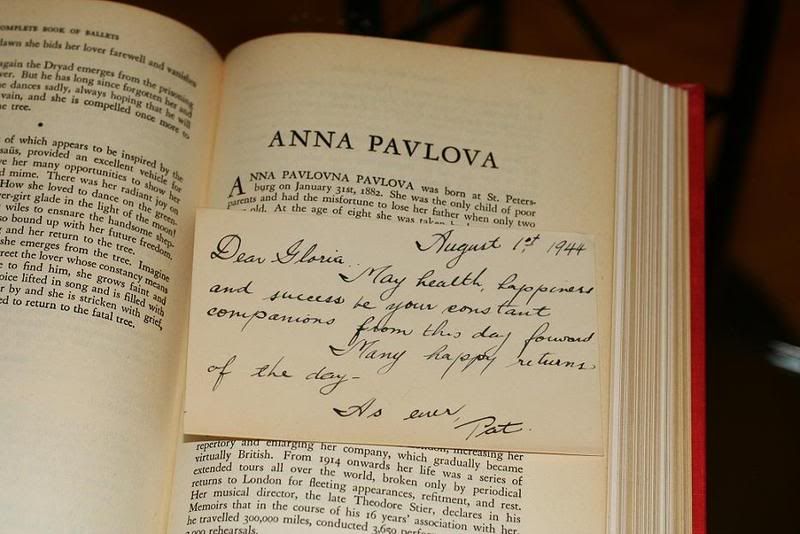 OMPLETE BOOK OF BALLETS
dawn she bids her lover farewell and vanishes
again the Dryad emerges from the prisoning
ver. But he has long since forgotten her and
e dances sadly, always hoping that he will
vain, and she is compelled once more to
e tree.
of which appears to be inspired by the
saüs, provided an excellent vehicle for
ve her many opportunities to show her
d mime. There was her radiant joy on
How she loved to dance on the green-
ver-girt glade in the light of the moon!
wiles to ensnare the handsome shep-
so bound up with her future freedom.
g and her return to the tree.
she emerges from the tree. Imagine
reet the lover whose constancy means
e to find him, she grows faint and
oice lifted in song and is filled with
r by and she is stricken with grief,
ed to return to the fatal tree.
ANNA PAVLOVA
ANNA PAVLOVNA PAVLOVA was born at St. Peters-
burg on January 31st, 1882. She was the only child of poor
parents and had the misfortune to lose her father when only two
old. At the age of eight she was taken
August 1st 1944
Dear Gloria..
May health, happiness
and success be your constant
companions from this day forward
Many happy returns
of the day-
As ever,
Pat.
repertory and enlarging her company, which gradually became
virtually British. From 1914 onwards her life was a series of
extended tours all over the world, broken only by periodical
returns to London for fleeting appearances, refitment, and rest.
Her musical director, the late Theodore Stier, declares in his
Memoirs that in the course of his 16 years' association with her,
he travelled 300,000 miles, conducted 3,650
rehearsals.